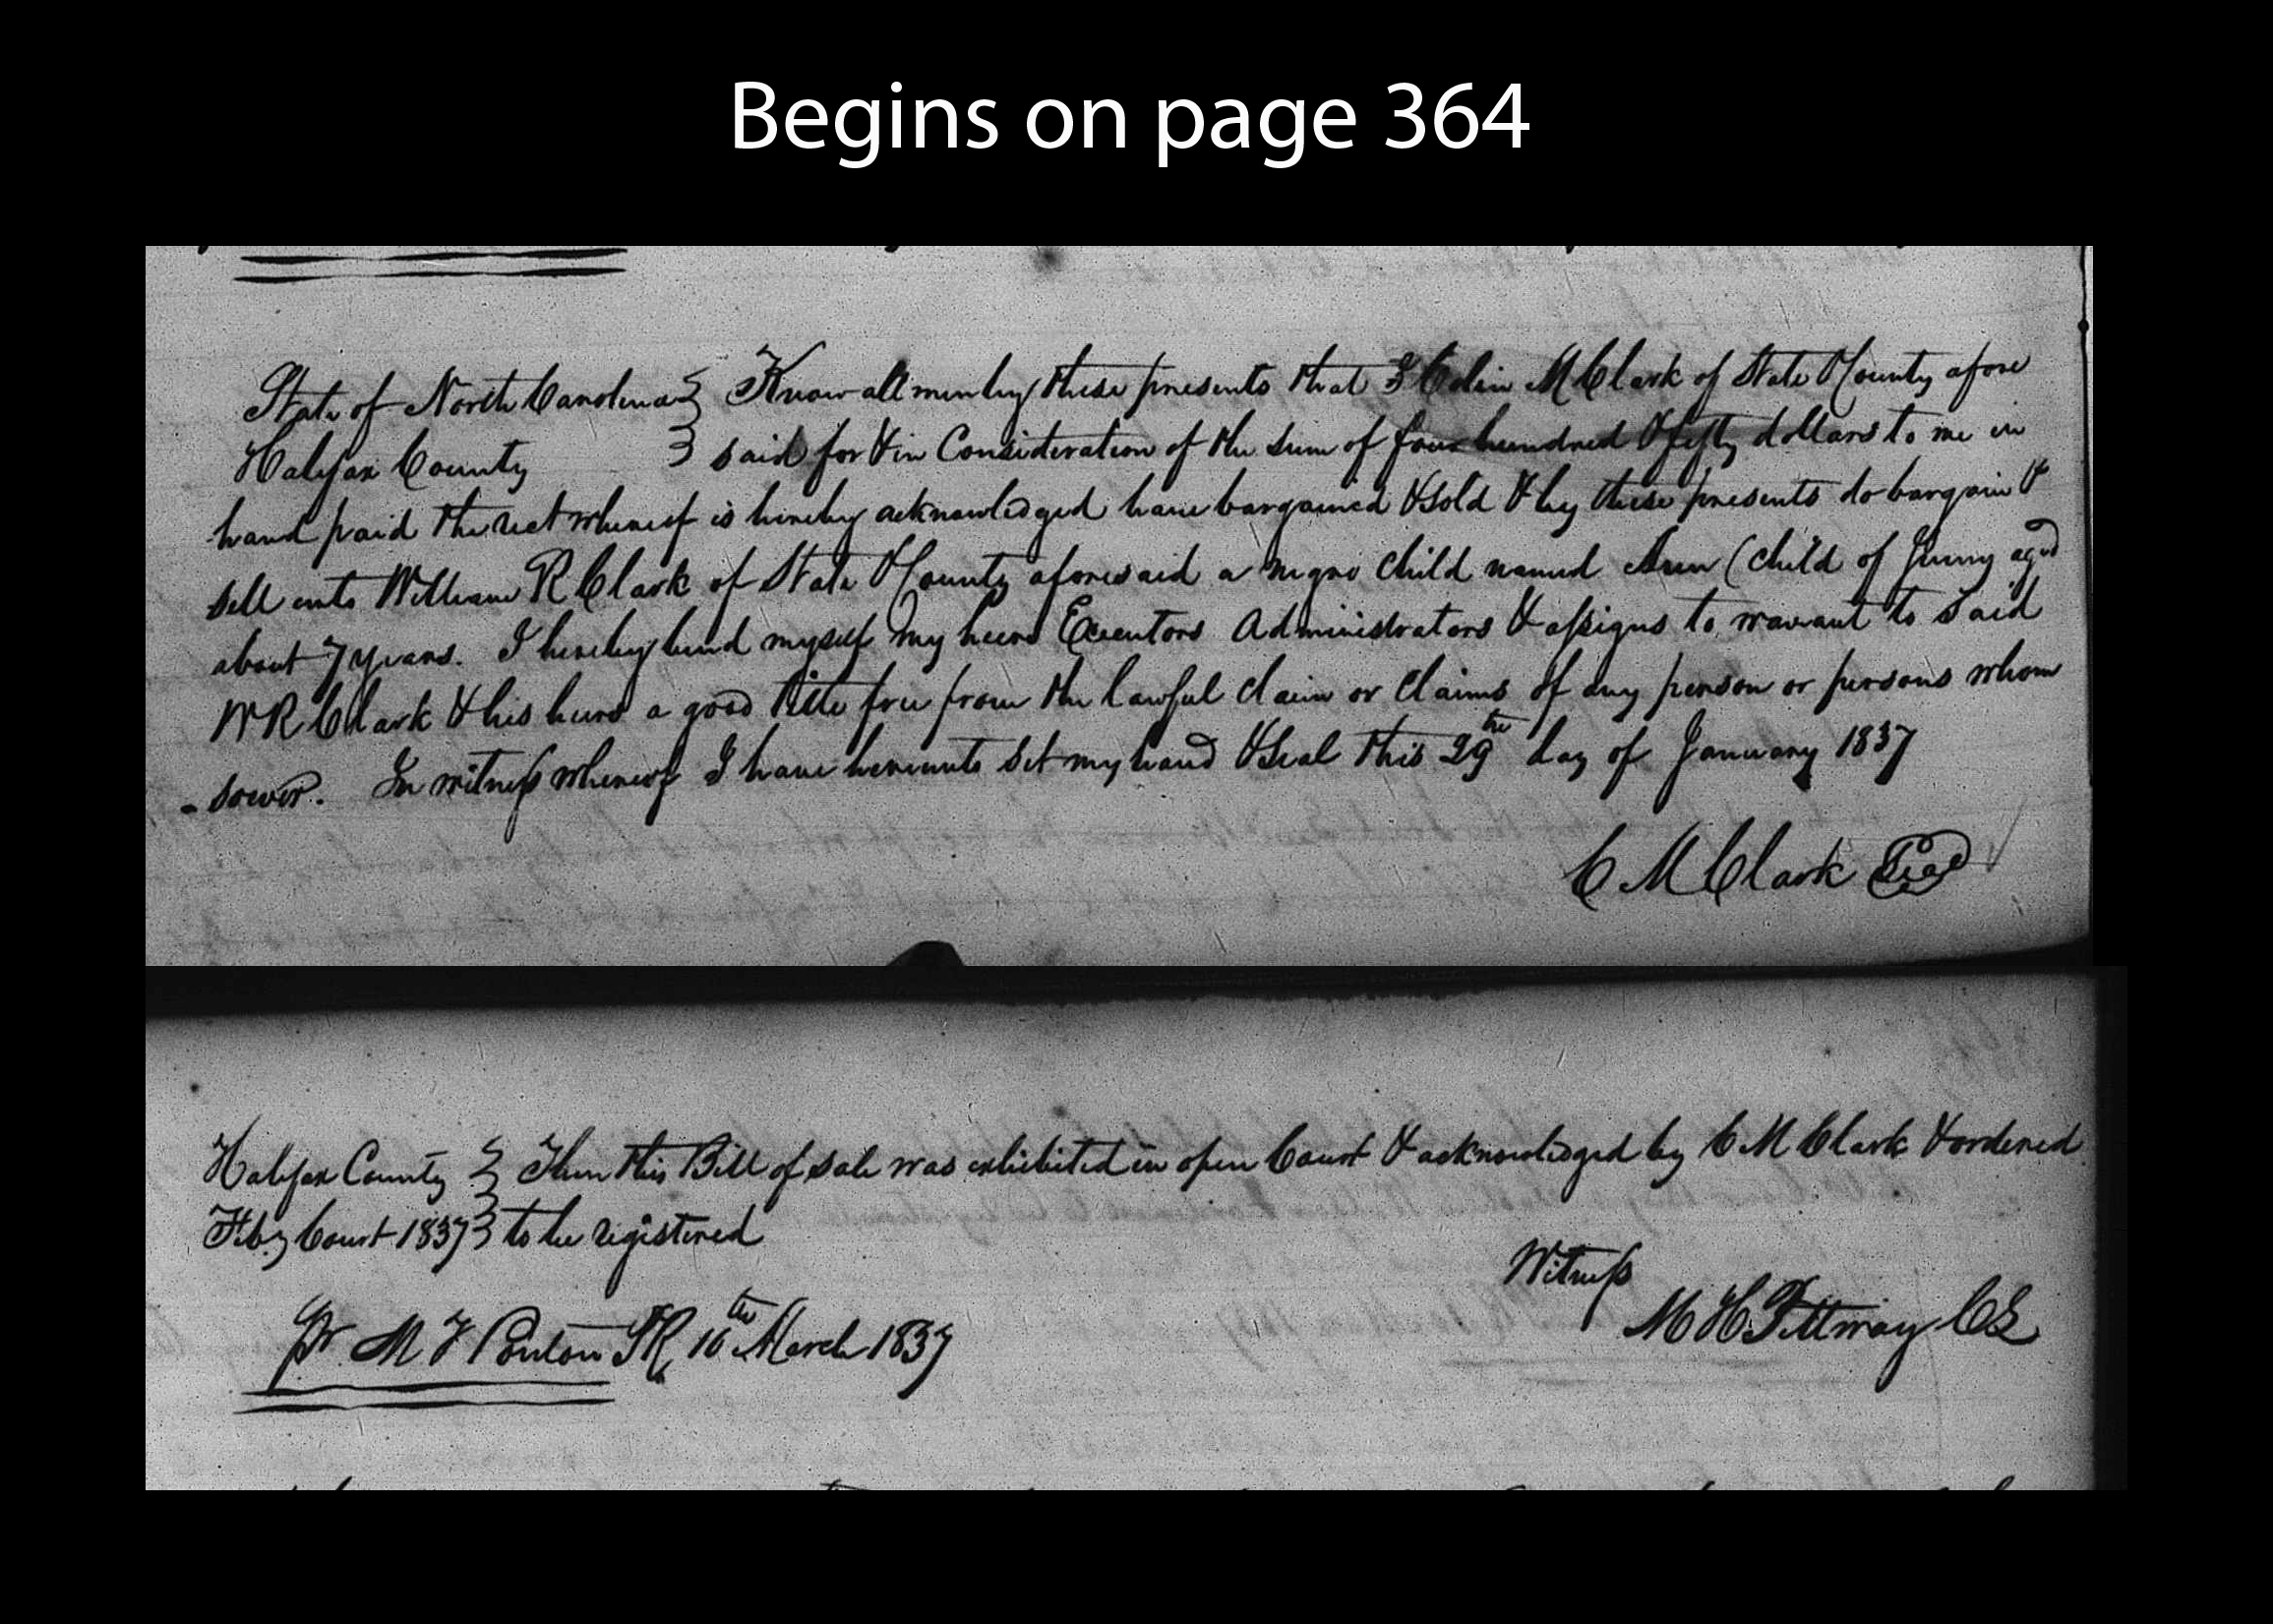 Begins on page 364
State of North Carolina } Know all men by these presents that I Colin M Clark of State & County afore
Halifax County } said for & in Consideration of the sum of four hundred & fifty dollars to me in
hand paid the rect whereof is hereby acknowledged have bargained & sold & by these presents do bargain &
sell unto William R Clark of State & County aforesaid a negro Child named Ann (Child of Jinny aged
about 7 years. I hereby bind myself my heirs Executors Administrators & assigns to warrant to said
WR Clark & his heirs a good title free from the lawful claim or Claims of any person or persons whom
-soever. In witness whereof I have hereunto set my hand & seal this 29th day of January 1837
C M Clark Seal
Halifax County } Then this Bill of sale was exhibited in open Court & acknowledged by C M Clark & ordered
Feby Court 1837 } to be registered
Witness
M H Pittway CS
Pr. M F Ponton PR 16th March 1837